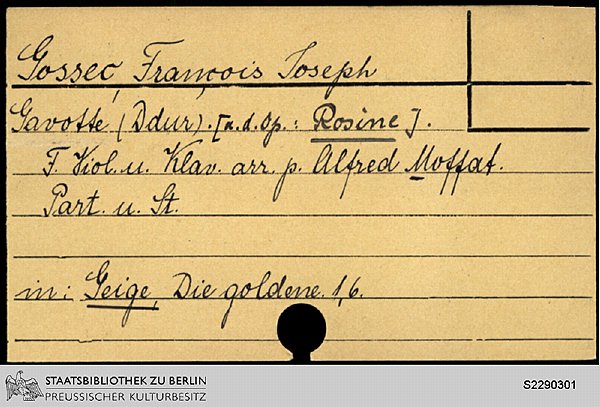 Gossec, François Joseph
Gavotte (Ddur). [a. d. Op.: Rosine].
F. Viol. u. Klav. arr. p. Alfred Moffat.
Part. u. St.
in: Geige, Die goldene. 1,6.
STAATSBIBLIOTHEK ZU BERLIN
PREUSSISCHER KULTURBESITZ
S2290301